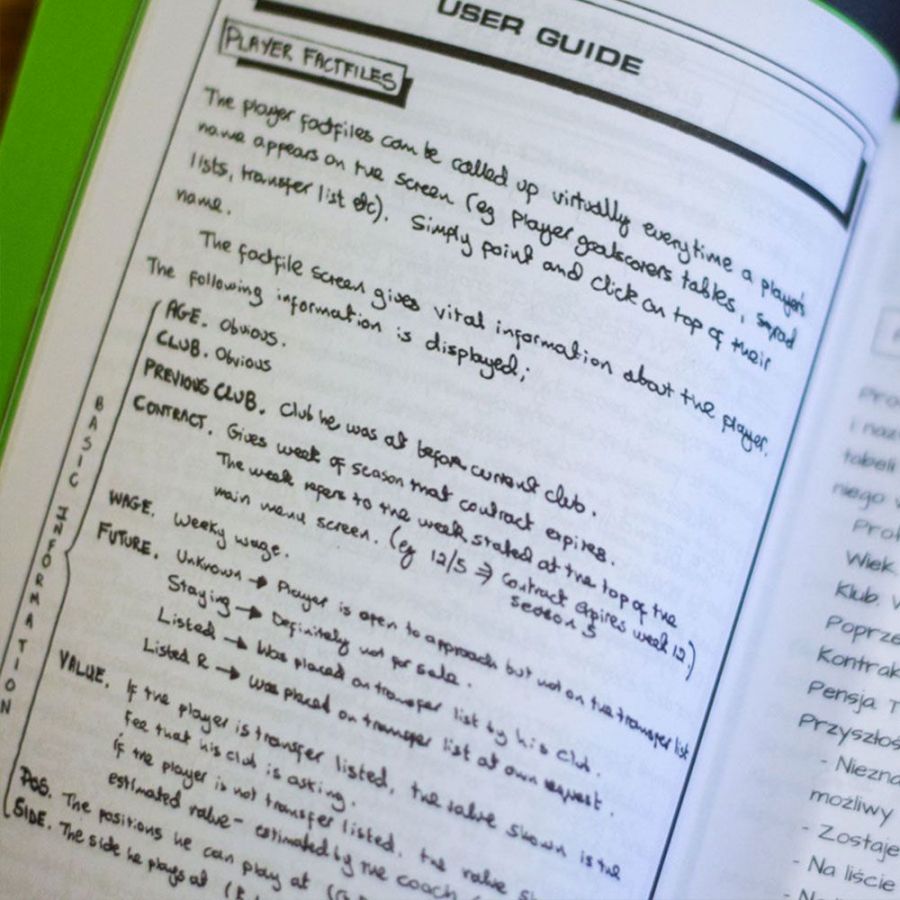 USER GUIDE
PLAYER FACTFILES
The player factfiles can be called up virtually everytime a players
name appears on the screen (eg player goalscorers tables, squad
lists, transfer list etc). Simply point and click on top of their
name.
The factfile screen gives vital information about the player.
The following information is displayed;
BASIC INFORMATION
AGE. Obvious.
CLUB. Obvious
PREVIOUS CLUB. Club he was at before current club.
CONTRACT. Gives week of season that contract expires.
The week refers to the week stated at the top of the
main menu screen. (eg 12/5 ⇒ contract expires week 12.)
season 5
WAGE. Weeky wage.
FUTURE. Unknown → Player is open to approach but not on the transfer list
Staying → Definitely not for sale.
Listed → Was placed on transfer list by his club.
Listed R → Was placed on transfer list at own request.
VALUE. If the player is transfer listed, the value shown is the
fee that his club is asking.
If the player is not transfer listed, the value
estimated value - estimated by the coach
POS. The positions he can play at
SIDE. The side he plays at
i
tabeli
niego
Wiek.
Klub.
Poprze
Kontrak
Pensja. T
Przyszłoś
- Niezna
możliwy
- Zostaje
- Na liście